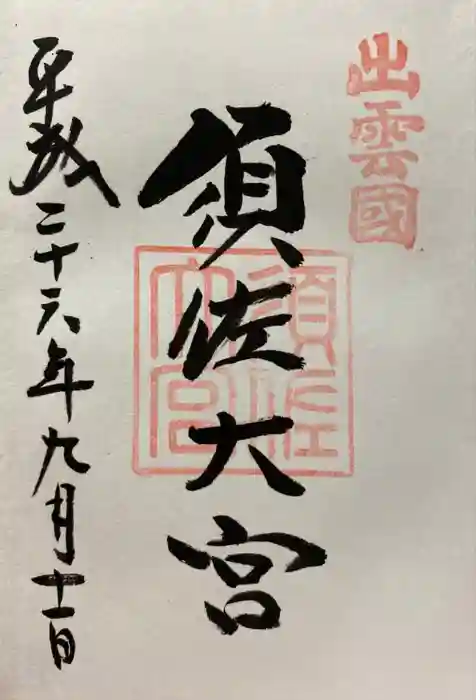 出雲國
須佐大宮
須佐
大宮
平成二十六年九月十一日